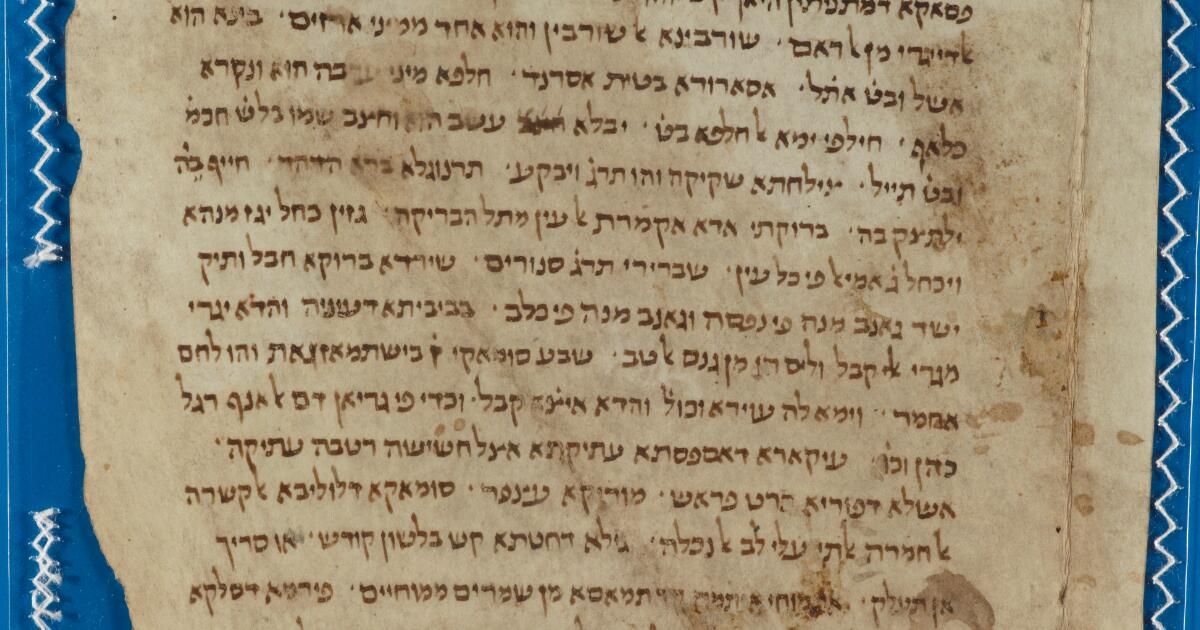 פסאקא דמתניתין היאך
אדייגרי מן אראם · שורבינא אלשורבין והוא אחד ממיני ארזים · בינא הוא
אשל ובט אתל · אסארורא בטית אסרנד · חלפא מיני ערבה הוא ונקרא
כלאף · חילפי ימא אלחלפא בט · יבלא עשב הוא וחצב שמו בלש חכמ
ובט תייל · צילחתא שקיקה והו תרג ויבקע · תרנוגלא ברא הדהד · חייף בה
ילתצק בה · ברוקתי אדא אקמרת אלעין מתל הבריקה · גזין כחל יגז מנהא
ויכחל גאמיא פי כל עין · שברירי תרג סנורים · שורדא ברוקא חבל ותיק
ישד גאנב מנה פי נפסה וגאנב מנה פי כלב · בביביתא דעיניה והדא יגרי
מגרי אלקבל וליס הן מן גנס אלטב · שבע סומאקי בישתמאזגאת והו לחם
אחמר · וימאלה עוירא וכול והדא איצא קבל · וכדי פי גריאן דם אלאנף רגל
כהן וכו עיקארא דאספסתא עתיקתא אצל חשישה רטבה עתיקה ·
אשלא דפוריא פראש · מוריקא עצפר · סומאקא דלוליבא אלקשרה
אלחמרה אלתי עלי לב אלנכלה · גילא דחטתא קש בלשון קודש · או סריך
אן תעלק · תמאסא מן שמרים ממוחיים · פירמא דסלקא